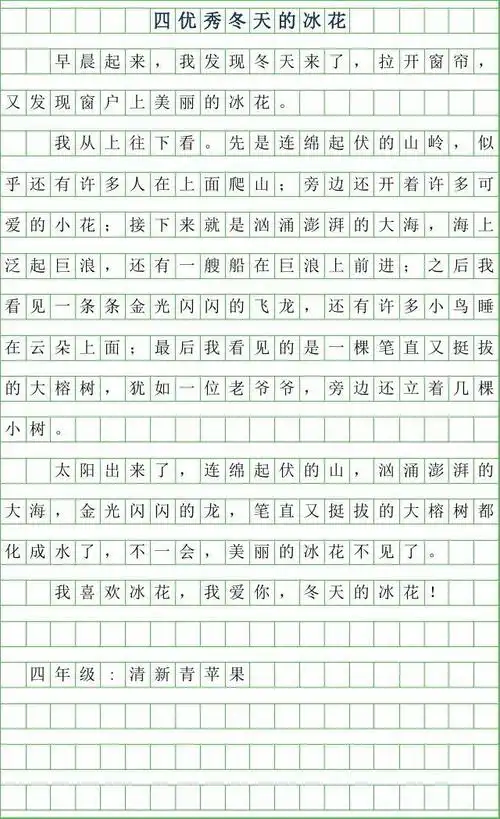 四优秀冬天的冰花
早晨起来，我发现冬天来了，拉开窗帘，
又发现窗户上美丽的冰花。
我从上往下看。先是连绵起伏的山岭，似
乎还有许多人在上面爬山；旁边还开着许多可
爱的小花；接下来就是汹涌澎湃的大海，海上
泛起巨浪，还有一艘船在巨浪上前进；之后我
看见一条条金光闪闪的飞龙，还有许多小鸟睡
在云朵上面；最后我看见的是一棵笔直又挺拔
的大榕树，犹如一位老爷爷，旁边还立着几棵
小树。
太阳出来了，连绵起伏的山，汹涌澎湃的
大海，金光闪闪的龙，笔直又挺拔的大榕树都
化成水了，不一会，美丽的冰花不见了。
我喜欢冰花，我爱你，冬天的冰花！
四年级：清新青苹果